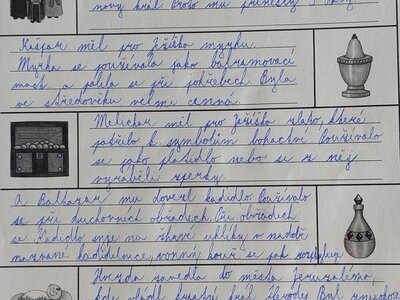 nový král. Proto mu přinesly 3 dary
Kašpar měl pro Ježíška myrhu.
Myrha se používala jako balzamovací
mast a pálila se při pohřbech. Byla
ve středověku velmi cenná.
Melichar měl pro Ježíška zlato, které
patřilo k symbolům bohactví. Používalo
se jako platidlo nebo se z něj
vyráběli šperky.
A Baltazar mu dovezl kadidlo. Používalo
se při duchovních obřadech. Při obřadech
se Kadidlo sype na žhavé uhlíky v nádobě
nazvané kadidelnice, vonný kouř se jak rozptyluje
Hvězda zavedla do města Jeruzaléma,
kde vládl krutý král Herodes. Byl